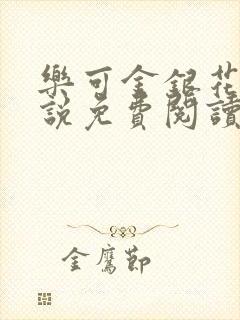 樂可金銀花
說免費閱讀
金鷹節